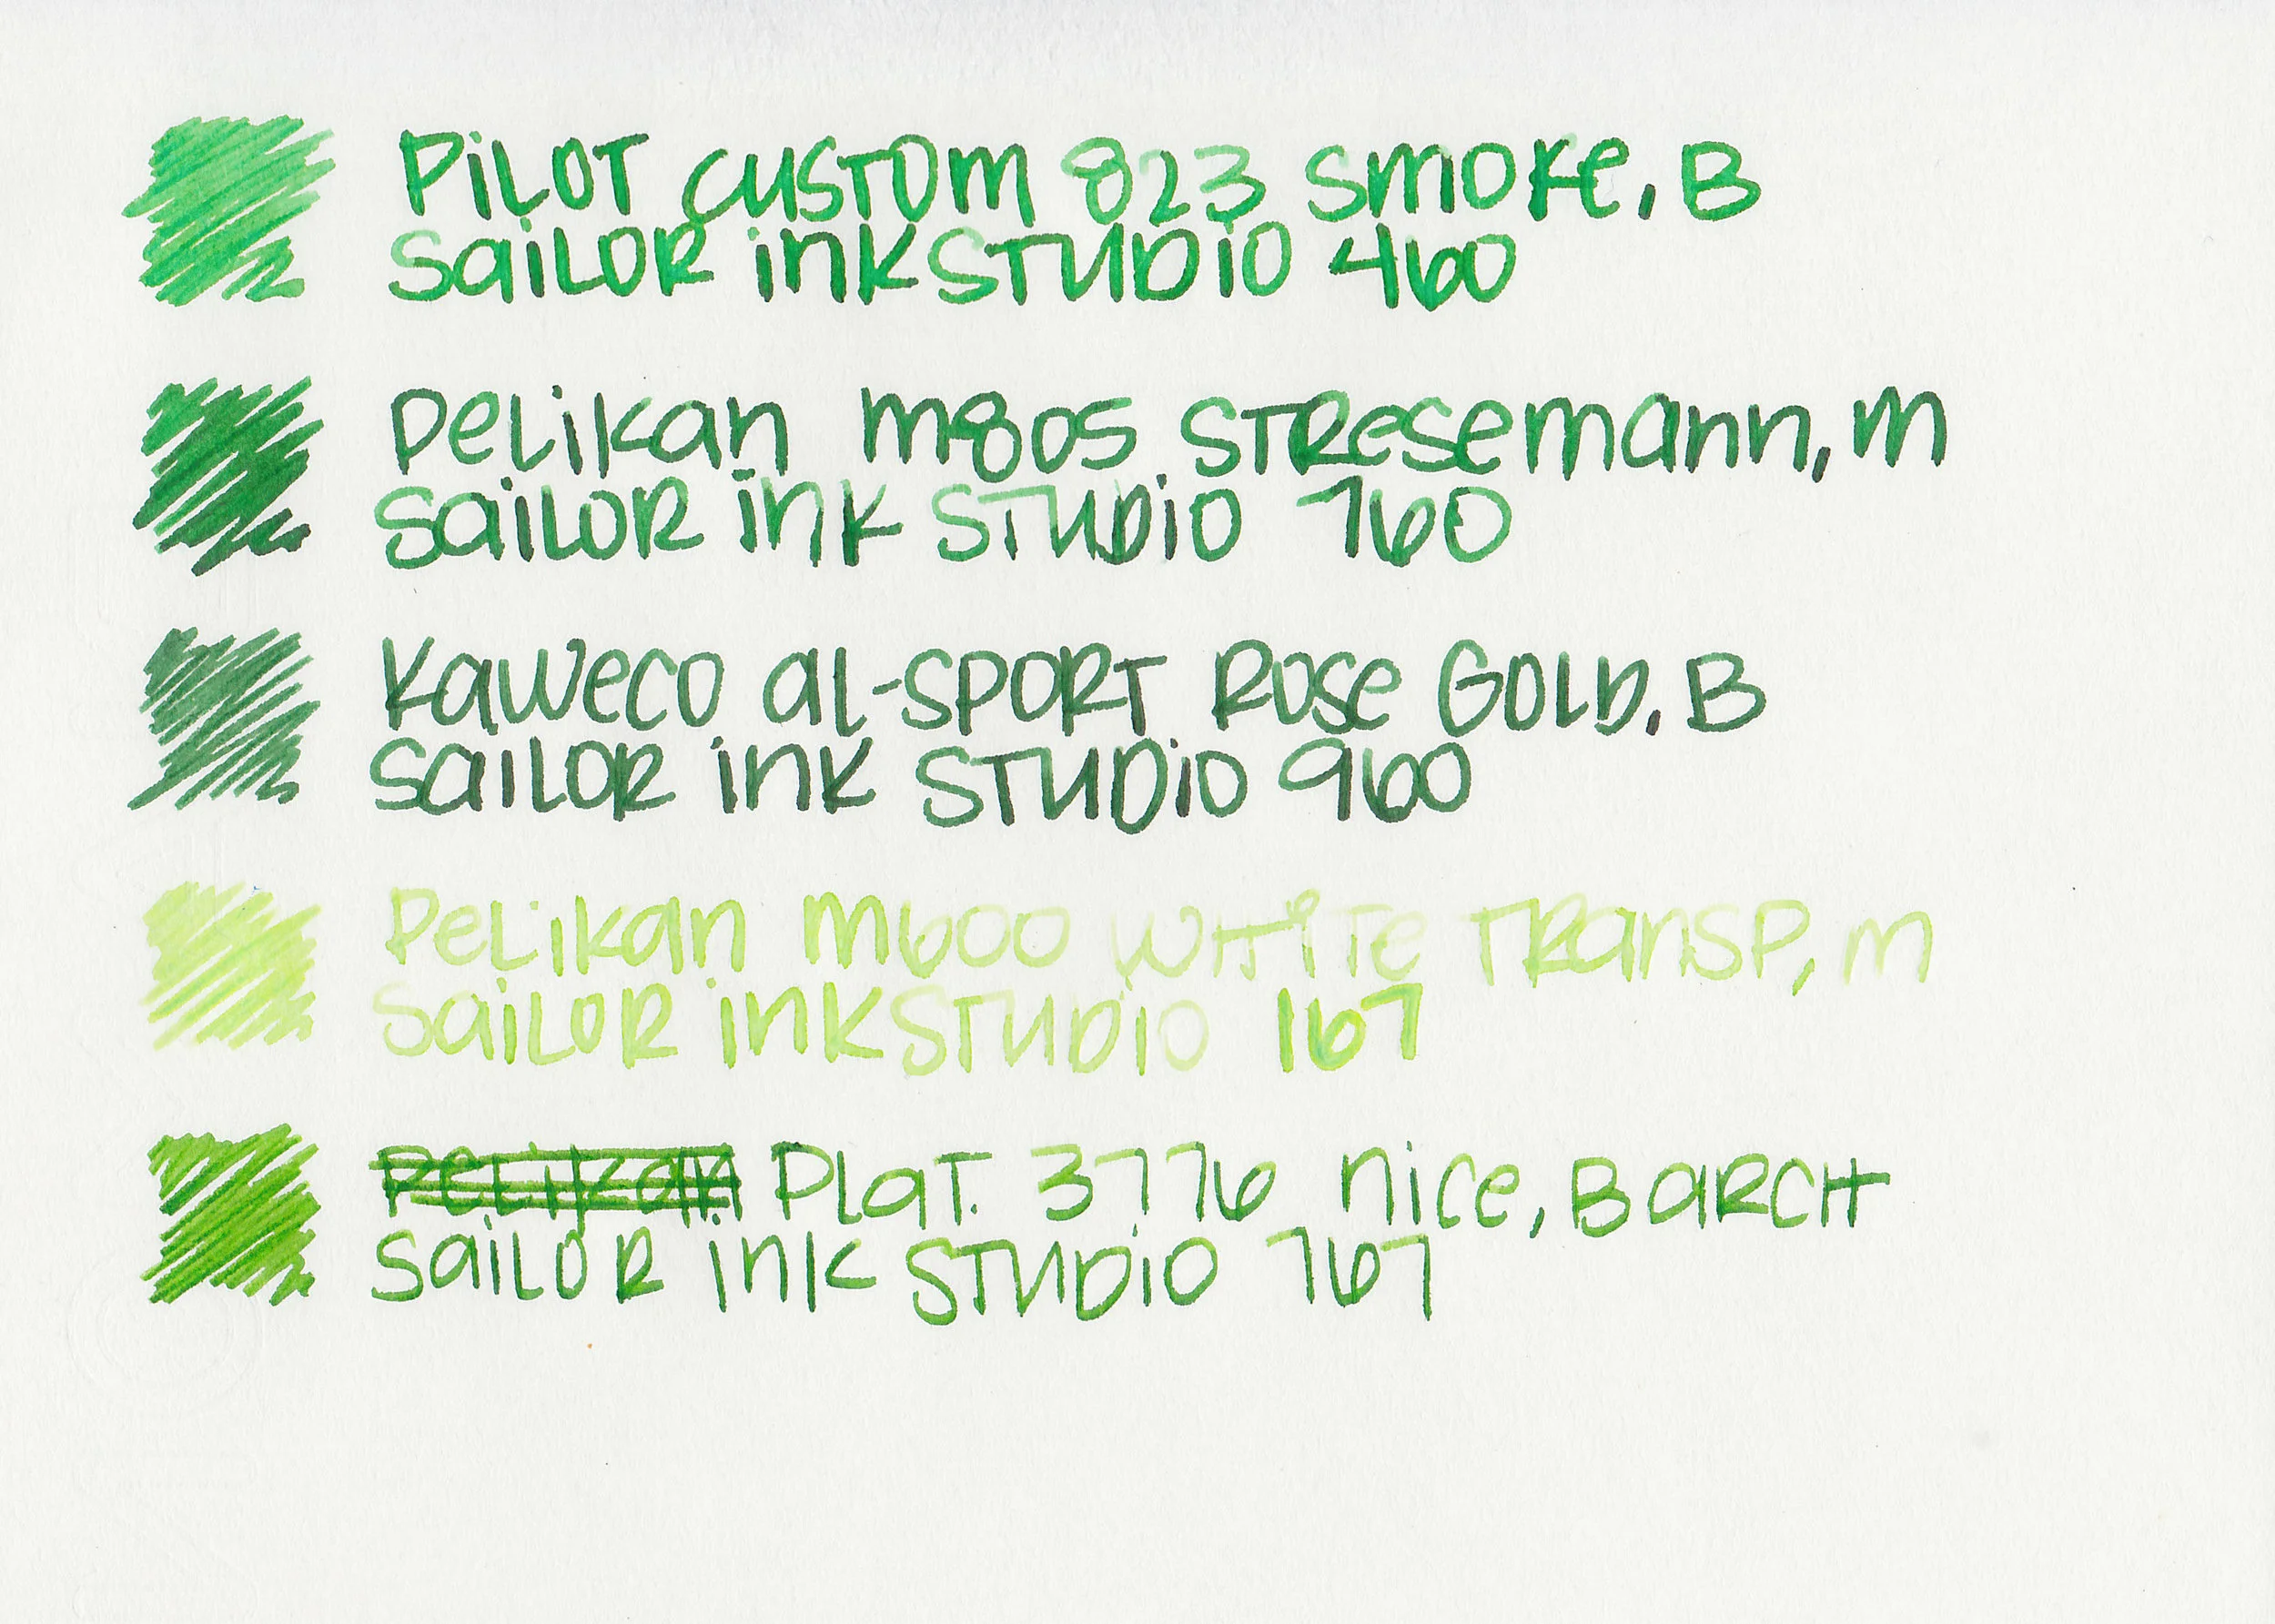 PiLOT CUSTOM 823 SMOKE, B
SaiLOR inKSTUDiO 460
PeLikan M805 STReSemann, M
SaiLOR ink STUDiO 760
Kaweco al-SPORT Rose GOLD, B
SaiLOR ink STUDiO 960
PeLikan M600 WHiTe TRanSP, M
SaiLOR inKSTUDiO 167
PeLikan PlaT. 3776 nice, B aRCH
SaiLOR ink STUDiO 767